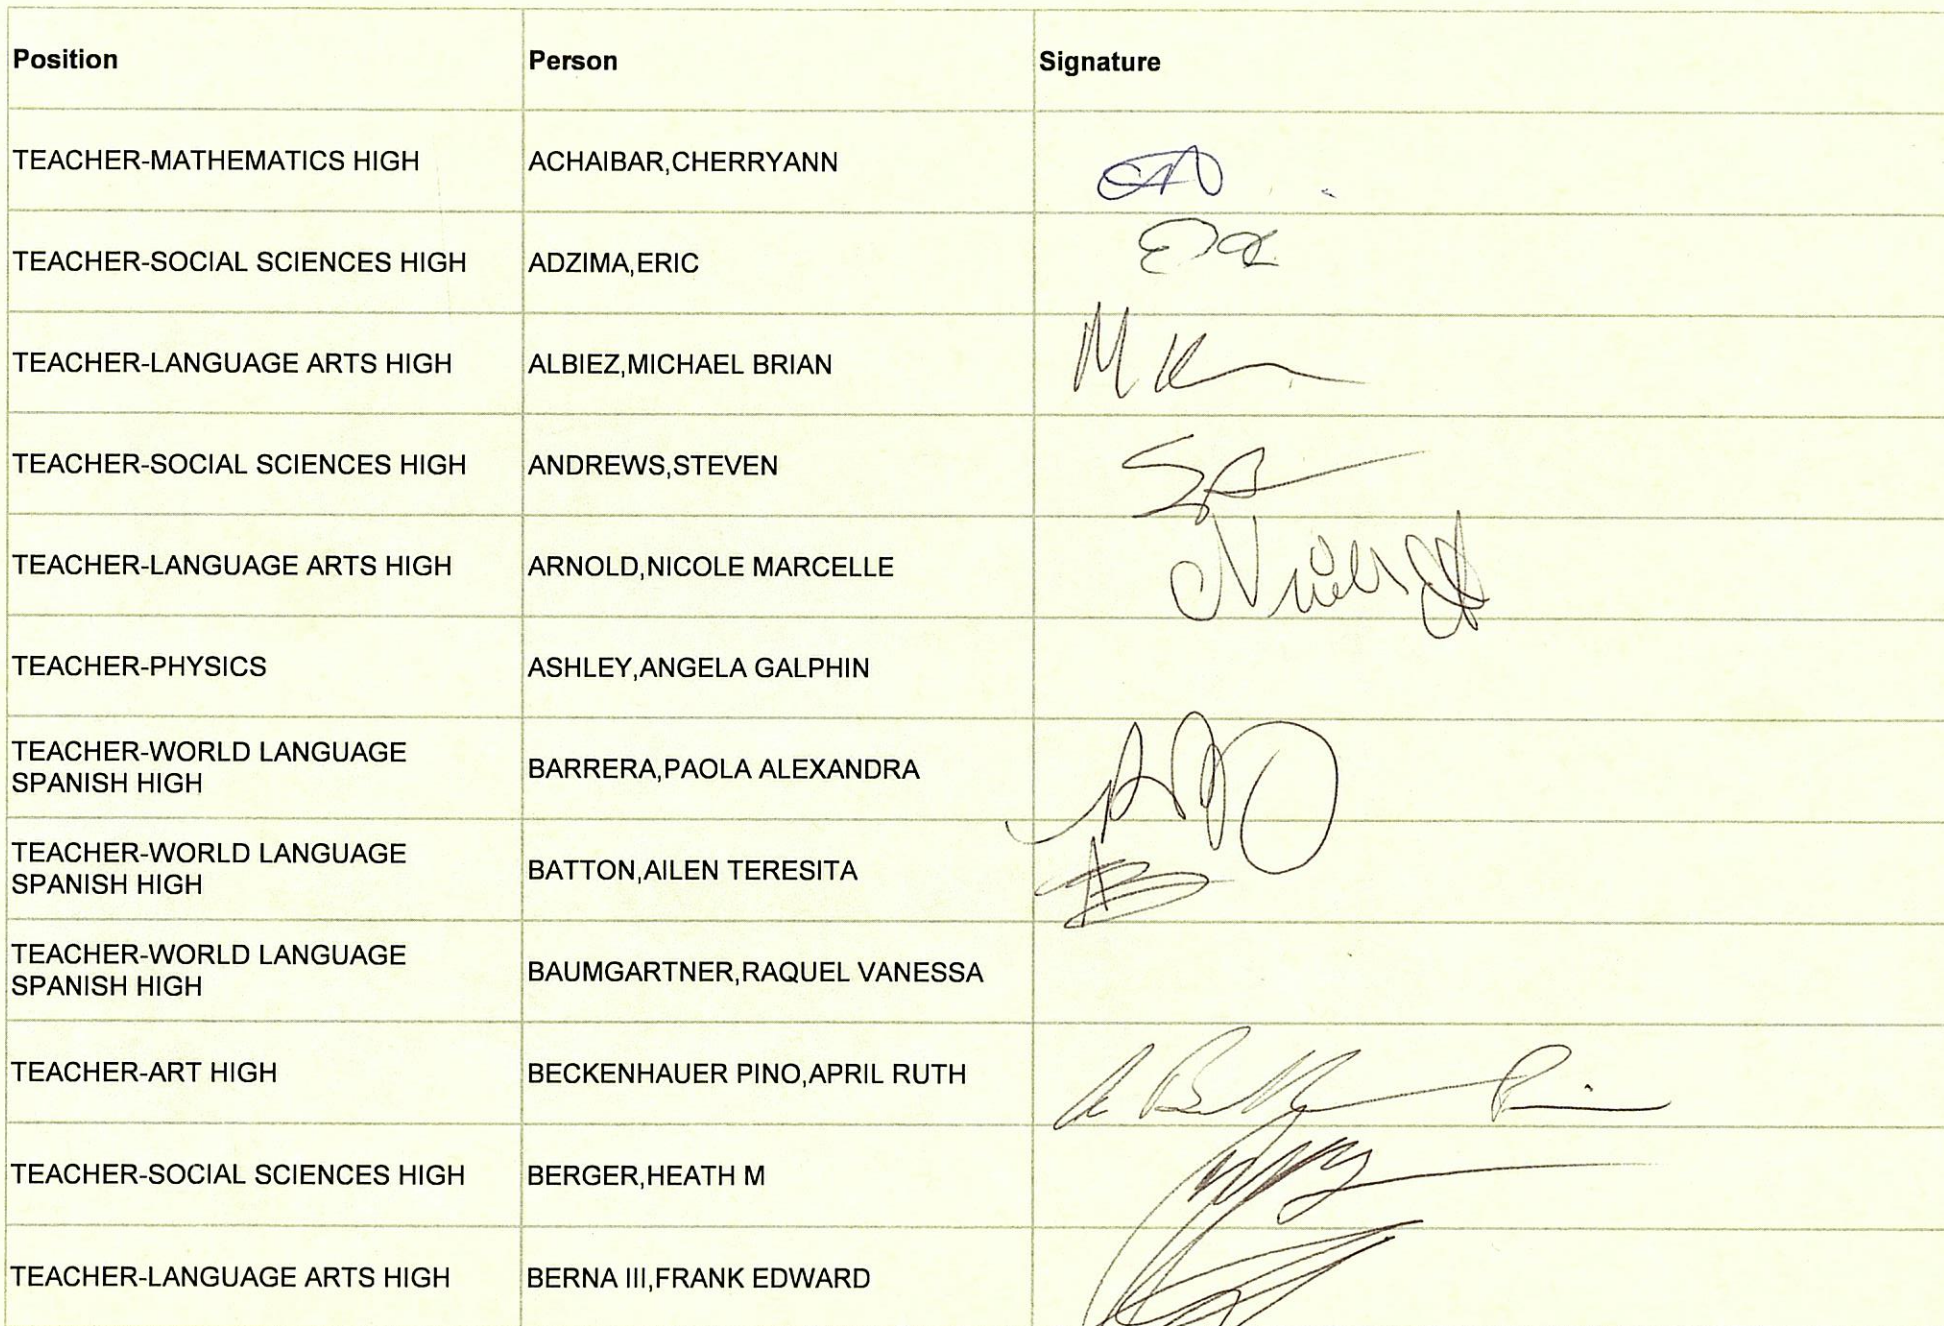 Position Person Signature
TEACHER-MATHEMATICS HIGH ACHAIBAR,CHERRYANN
TEACHER-SOCIAL SCIENCES HIGH ADZIMA,ERIC
TEACHER-LANGUAGE ARTS HIGH ALBIEZ,MICHAEL BRIAN
TEACHER-SOCIAL SCIENCES HIGH ANDREWS,STEVEN
TEACHER-LANGUAGE ARTS HIGH ARNOLD,NICOLE MARCELLE
TEACHER-PHYSICS ASHLEY,ANGELA GALPHIN
TEACHER-WORLD LANGUAGE
SPANISH HIGH BARRERA,PAOLA ALEXANDRA
TEACHER-WORLD LANGUAGE
SPANISH HIGH BATTON,AILEN TERESITA
TEACHER-WORLD LANGUAGE
SPANISH HIGH BAUMGARTNER,RAQUEL VANESSA
TEACHER-ART HIGH BECKENHAUER PINO,APRIL RUTH
TEACHER-SOCIAL SCIENCES HIGH BERGER,HEATH M
TEACHER-LANGUAGE ARTS HIGH BERNA III,FRANK EDWARD